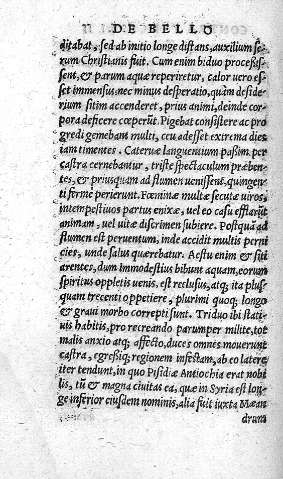 DE BELLO
ditabat, sed ab initio longe distans, auxilium se-
rum Christianis fuit. Cum enim biduo processis-
sent, & parum aquæ reperiretur, calor uero es-
set immensus: nec minus desperatio, quàm deside-
rium sitim accenderet, prius animi, deinde cor-
pora deficere cœperūt. Pigebat consistere ac pro
gredi gemebant multi, ceu adesset extrema dies
iam timentes. Cateruæ languentium paßim, per
castra cernebantur, triste spectaculum præben-
tes, & priusquam ad flumen uenissent, quingen
ti ferme perierunt. Fœminæ multæ secutæ uiros,
intempestiuos partus enixæ, uel eo casu efflarūt
animam, uel uitæ discrimen subiere. Postquā ad
flumen est peruentum, inde accidit multis perni
cies, unde salus quærebatur. Aestu enim & siti
arentes, dum immodestius bibunt aquam, eorum
spiritus oppletis uenis, est reclusus, atq; ita plus-
quam trecenti oppetiere, plurimi quoq; longo
& graui morbo correpti sunt. Triduo ibi statiuis
uis habitis, pro recreando parumper milite, tot
malis anxio atq; affecto, duces omnes mouerunt
castra, egreßiq; regionem infestam, ab eo latere
iter tendunt, in quo Pisidiæ Antiochia erat nobi
lis, tū & magna ciuitas ea, quæ in Syria est lon-
ge inferior eiusdem nominis, alia fuit iuxta Mæan
drum